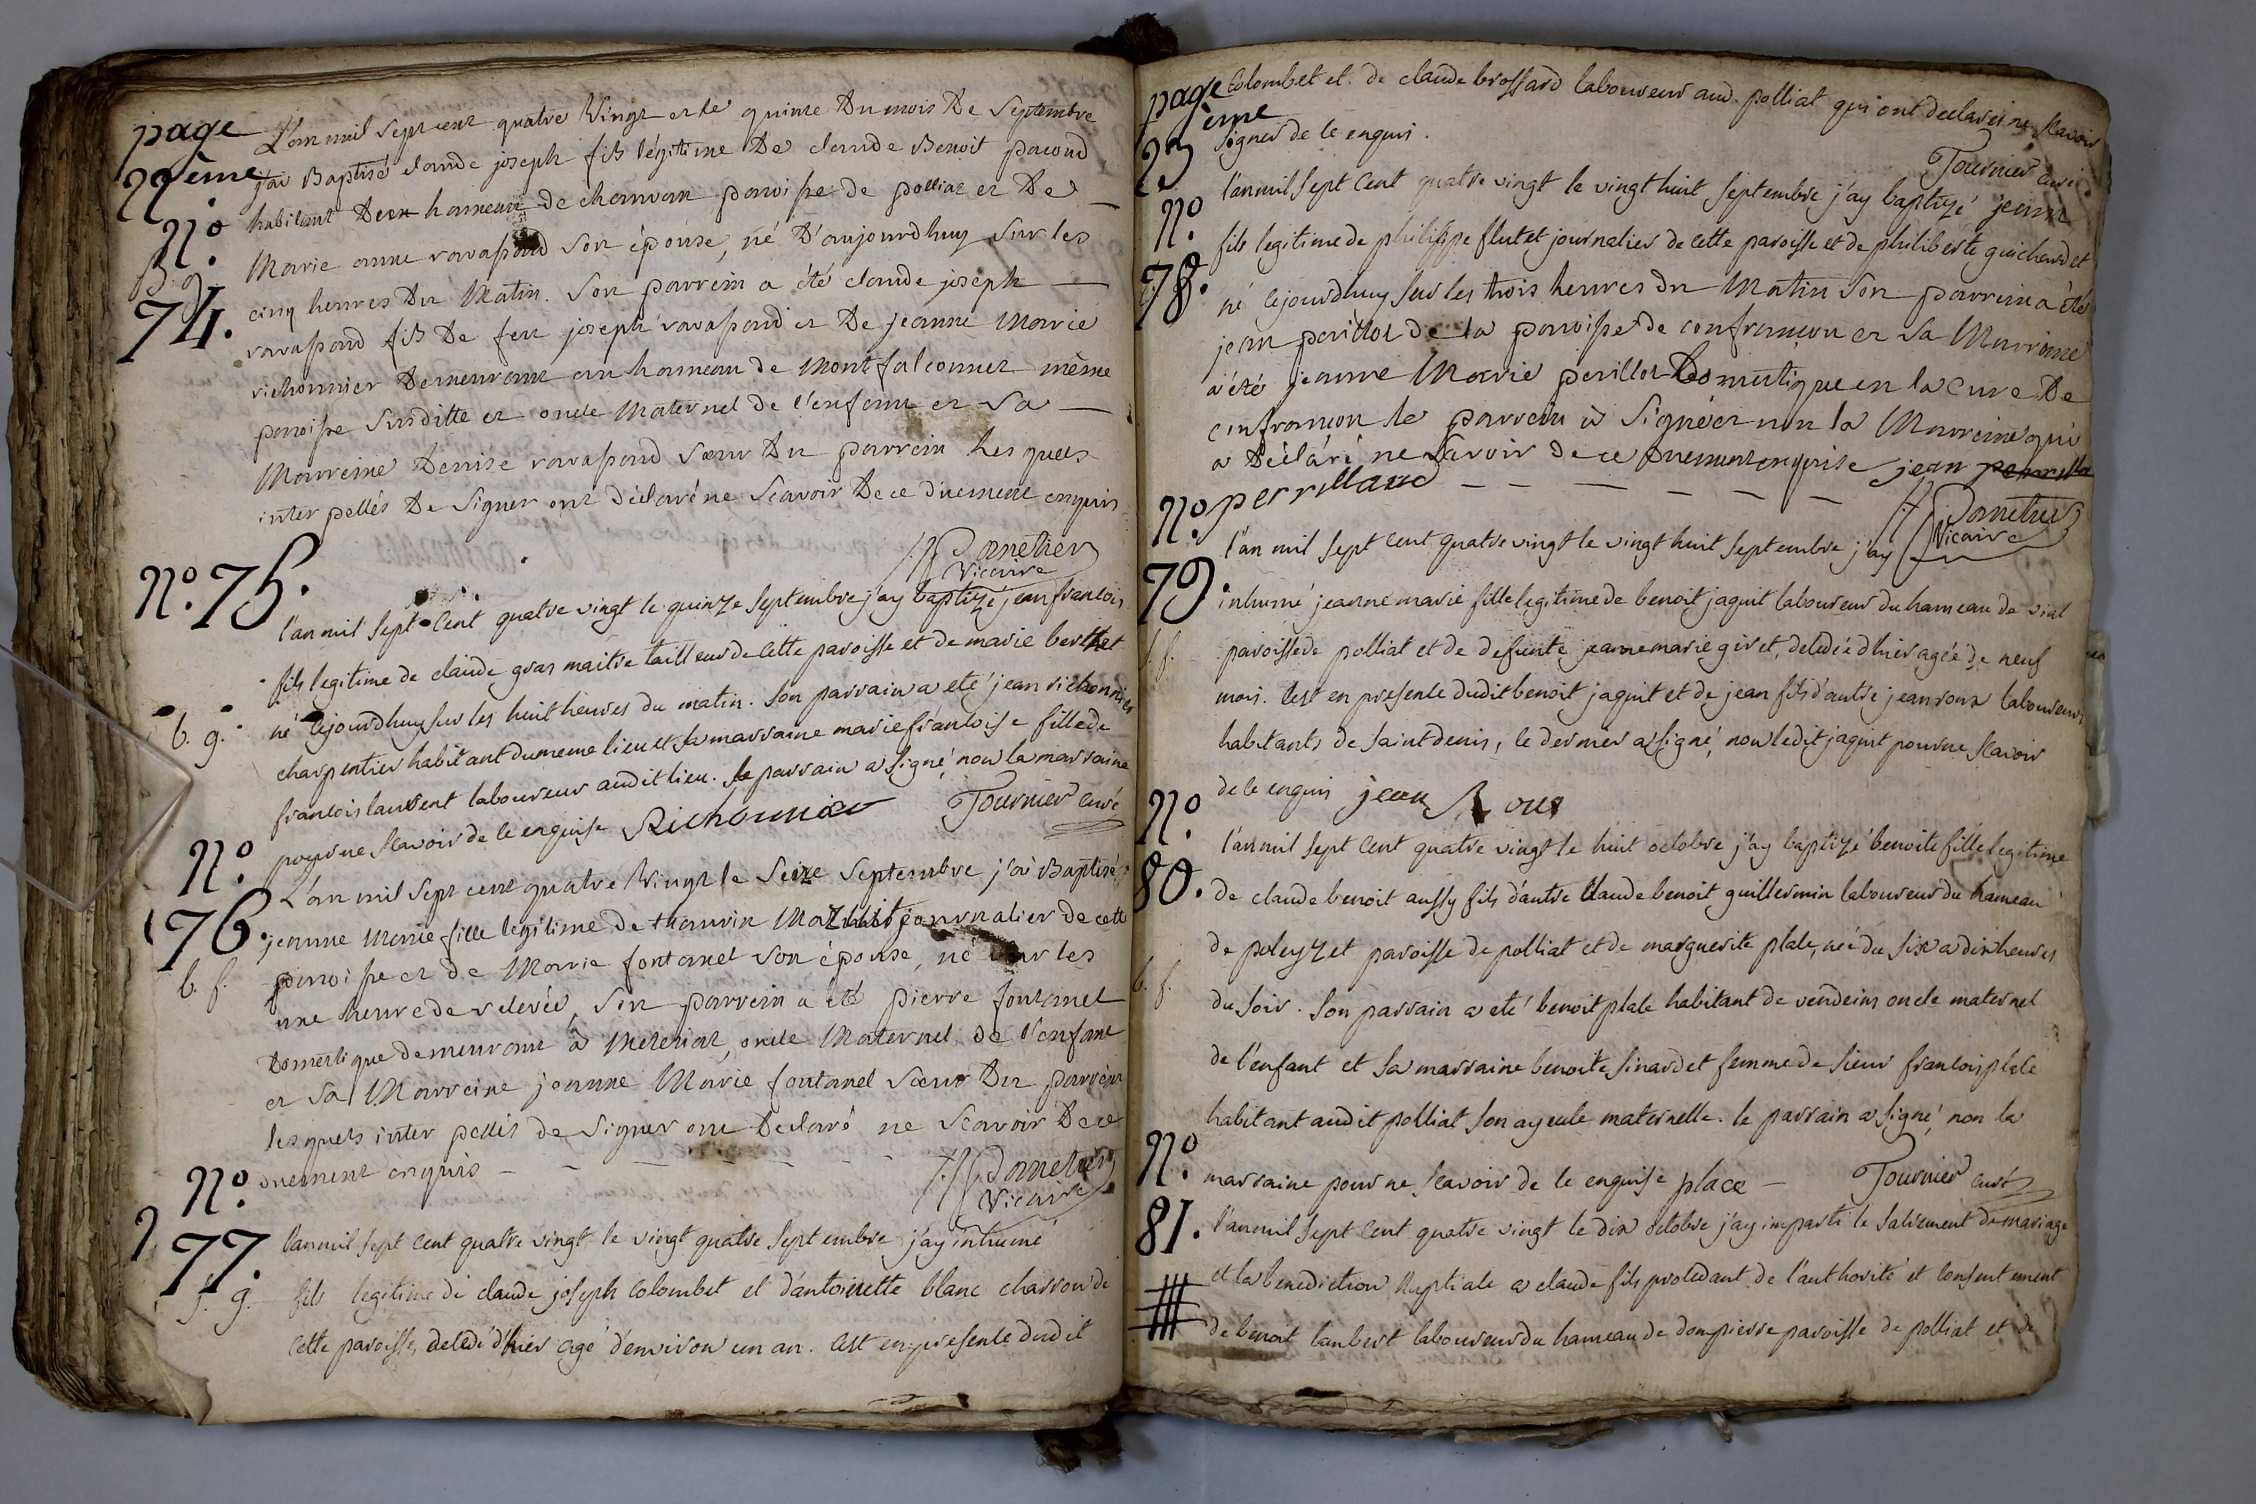 page
22ème
L'an mil sept cent quatre vingt et le quinze Du mois De Septembre
j'ai Baptisé claude joseph fils légitime De claude Benoit pacoud
habitant hameau de chanvan paroisse de polliat et De
N.º
B. g.
74.
Marie anne ravassoud son épouse, né D'aujourdhuy sur les
cinq heures Du Matin. Son parrein a été claude joseph
ravassoud fils De feu joseph ravassoud et De jeanne Marie
richonnier Demeurant au hameau de Montfalconnet même
paroisse Susditte et oncle Maternel de l'enfant et Sa
Marreine Denise ravassoud Sœur Du parrein Lesquels
interpellés De Signer ont déclaré ne Scavoir De ce duement enquis
Panetier
Vicaire
N.º 75.
l'an mil sept Cent quatre vingt le quinze septembre j'ay baptizé jean francois
fils legitime de claude gras maitre tailleur de cette paroisse et de marie berthet
b. g.
né cejourdhuy sur les huit heures du matin. son parrain a eté jean richonnier
charpentier habitant du meme lieu et sa marraine marie francoise fille de
francois laurent laboureur audit lieu. le parrain a signé non la marraine
pour ne scavoir de ce enquise Richonnier Tournier curé
N.º
76.
b. f.
L'an mil Sept cent quatre Vingt le Seize Septembre j'ai Baptisé
jeanne Marie fille legitime de thauvin Mazuit journalier de cette
paroisse et de Marie fontanel son épouse, né sur les
une heure de relevée, Son parrein a été pierre fontanel
Domestique demeurant à Mezeriat, oncle Maternel de l'enfant
et Sa Marreine jeanne Marie fontanel Sœur Du parrein
lesquels interpellés de Signer ont Déclaré ne Scavoir De ce
duement enquis
Panetier
Vicaire
N.º
77.
s. g.
l'an mil sept cent quatre vingt le vingt quatre septembre j'ay inhumé
fils legitime de claude joseph Colombet et d'antoinette blanc charron de
cette paroisse, decedé d'hier agé d'environ un an. c'est en presence dudit
page
23ème
Colombet et de claude brossard laboureur aud. polliat qui ont declarés ne scavoir
signer de ce enquis.
Tournier curé
N.º
78.
l'an mil sept Cent quatre vingt le vingt huit septembre j'ay baptizé jeanne
fils legitime de philippe flutet journalier de cette paroisse et de philiberte guichardet
né cejourdhuy sur les trois heures du Matin Son parrein a été
jean perillot de la paroisse de confrançon et sa Marreine
a été jeanne Marie perillot Domestique en la Cure De
confrançon le parrein a Signé et non la Marreine qui
a Déclaré ne Savoir de ce duement enquise jean
perrillaud
Panetier
Vicaire
N.º
79.
l'an mil sept cent quatre vingt le vingt huit septembre j'ay
inhumé jeanne marie fille legitime de benoit jaquit laboureur du hameau de vial
f.
paroisse de polliat et de defunte jeanne marie giret, decedée d'hier agée de neuf
mois. c'est en presence dudit benoit jaquit et de jean fils d'autre jean roux laboureurs
habitants de saint denis, le dernier a signé, non ledit jaquit pour ne scavoir
de ce enquis jean Roux
N.º
80.
b. f.
l'an mil sept Cent quatre vingt le huit octobre j'ay baptizé benoite fille legitime
de claude benoit aussy fils d'autre Claude benoit guillermin laboureur du hameau
de poleyzet paroisse de polliat et de marguerite place, née du six a dix heures
du soir. son parrain a eté benoit place habitant de vendeins oncle maternel
de l'enfant et sa marraine benoite sinardet femme de sieur francois place
habitant audit polliat son ayeule maternelle. le parrain a signé, non la
marraine pour ne scavoir de ce enquise place Tournier curé
N.º
81.
l'an mil sept Cent quatre vingt le dix octobre j'ay imparti le sacrement de mariage
et la benediction Nuptiale a claude fils procedant de l'authorité et consentement
de benoit lanbert laboureur du hameau de donpierre paroisse de polliat et de